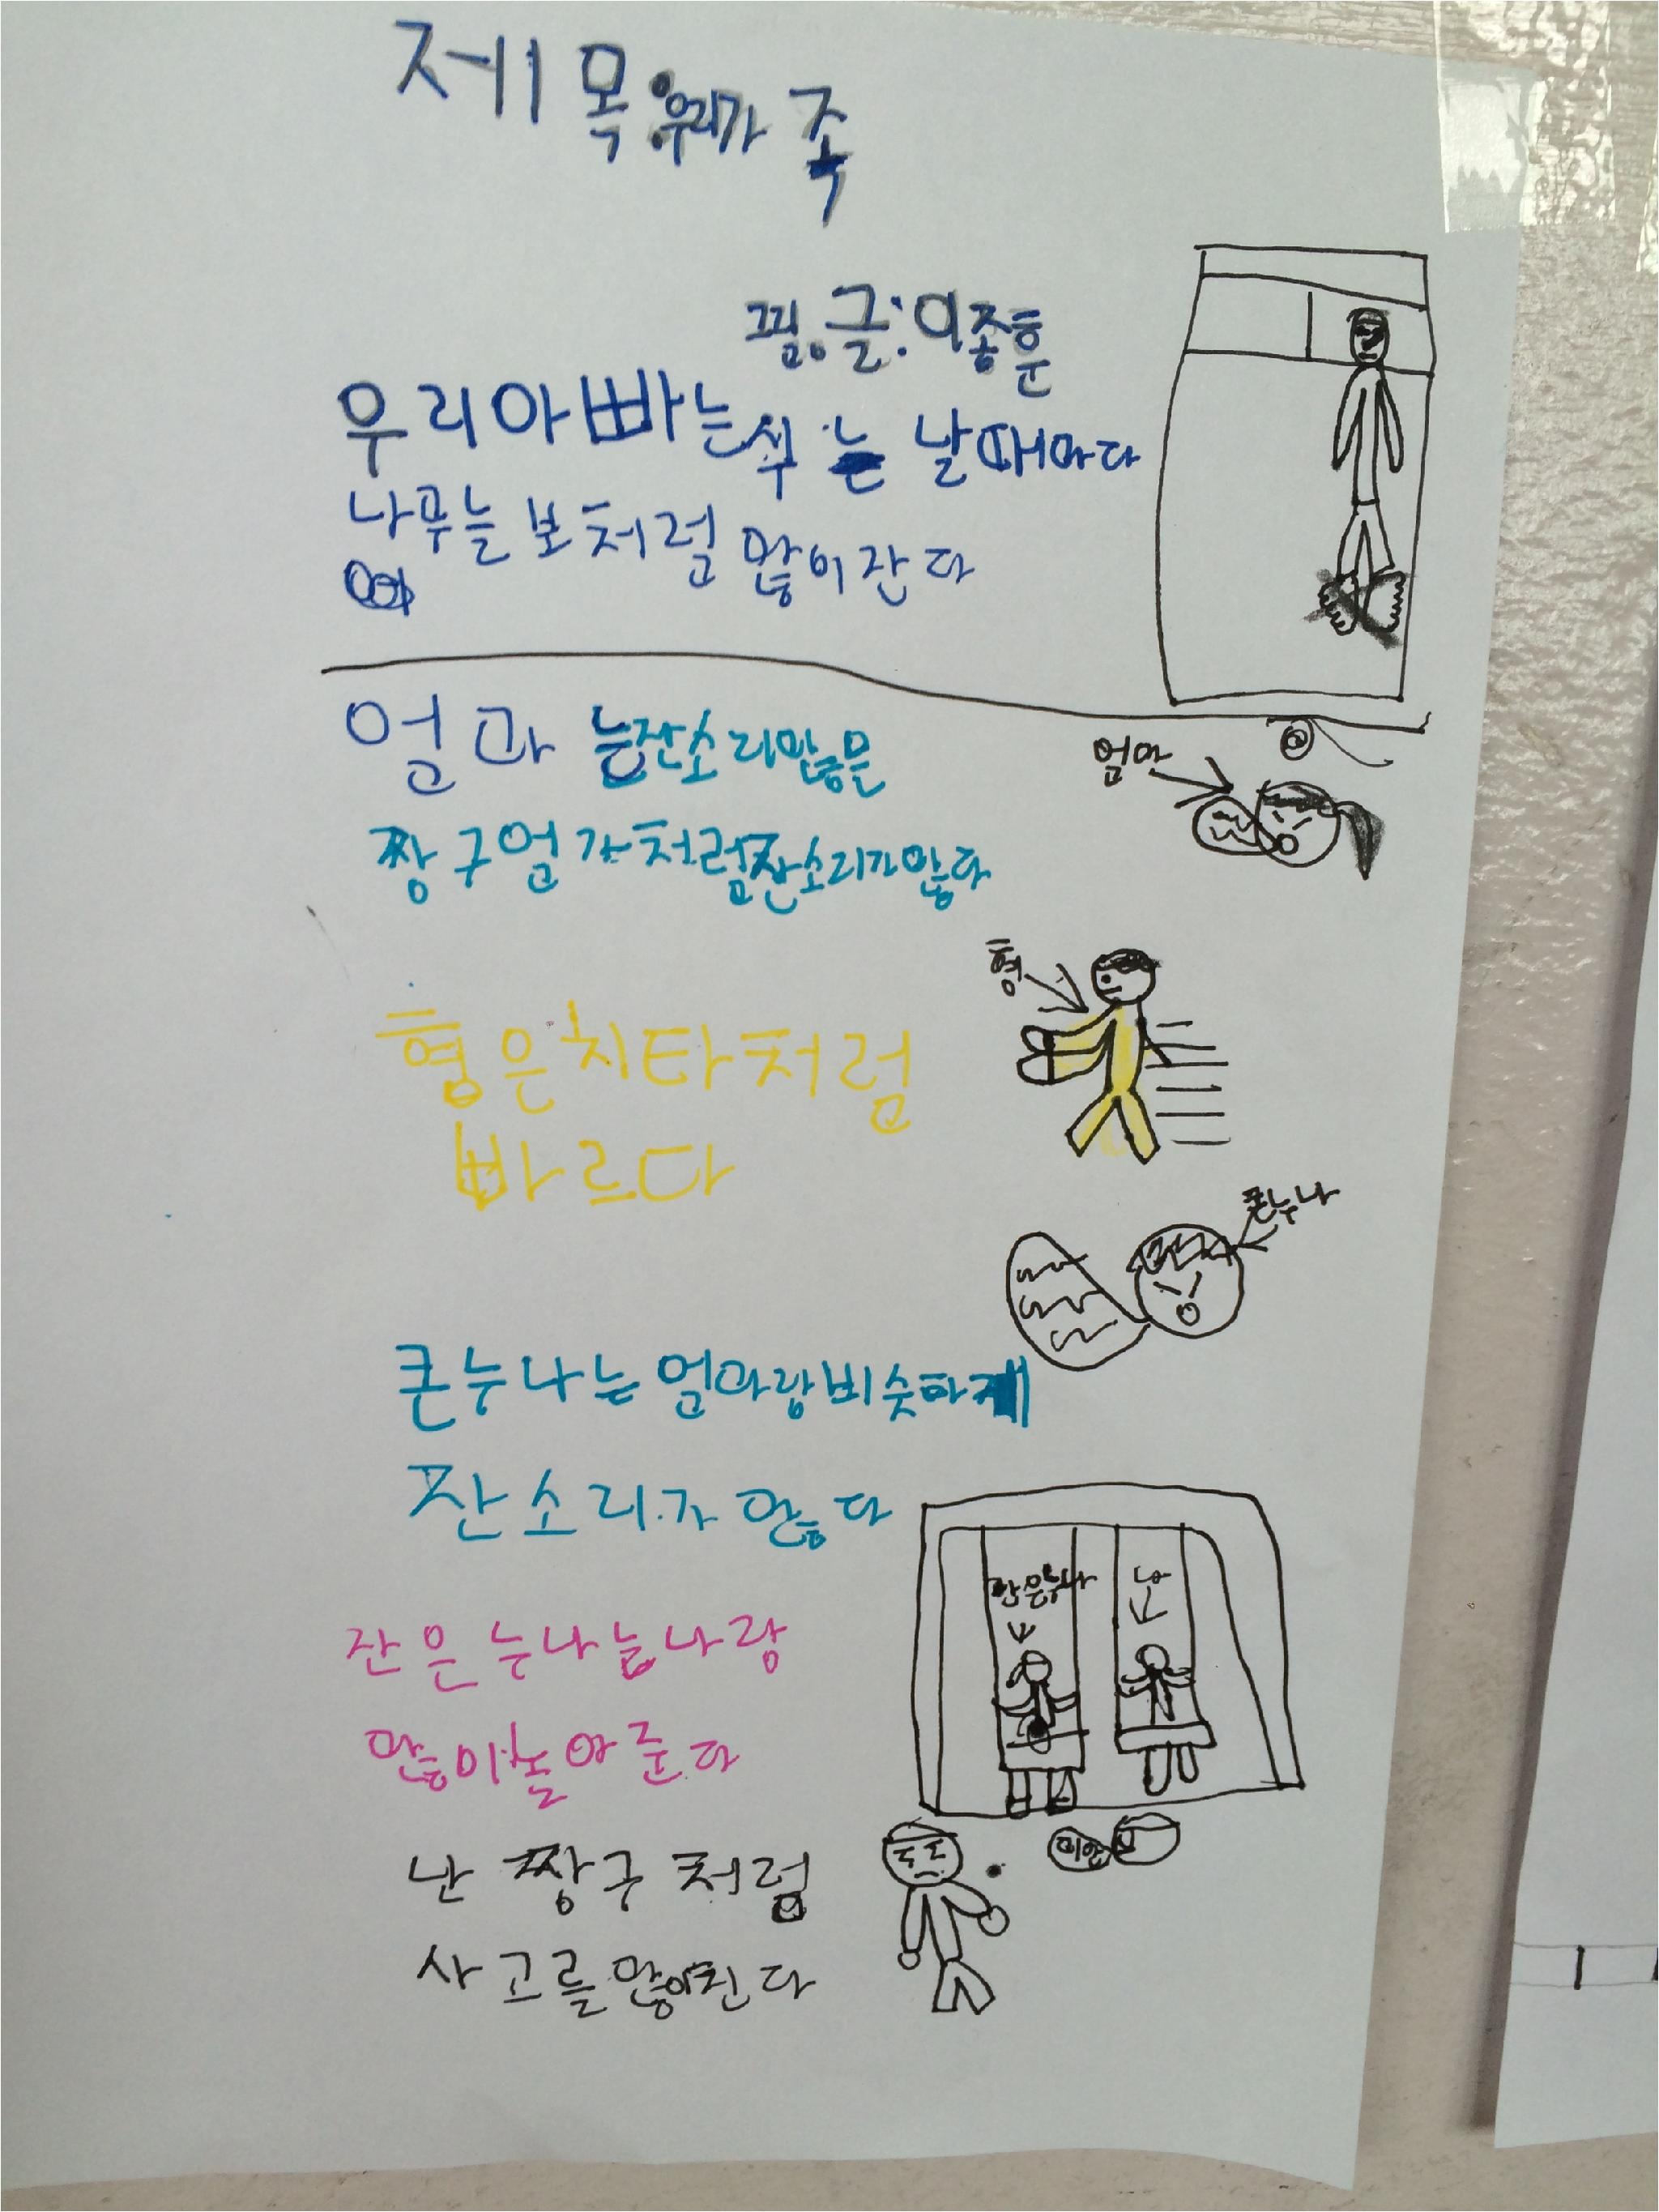 제목:우리가족
글:이종훈
우리아빠는 쉬는 날때마다
나무늘보처럼 많이잔다
엄마는잔소리많은
엄마
짱구엄마처럼잔소리가많다
형
형은치타처럼
빠르다
큰누나
큰누나는엄마랑비슷하게
잔소리가 많다
잔은누나 나
잔은누나는나랑
많이놀아준다
난 짱구처럼
사고를많이친다